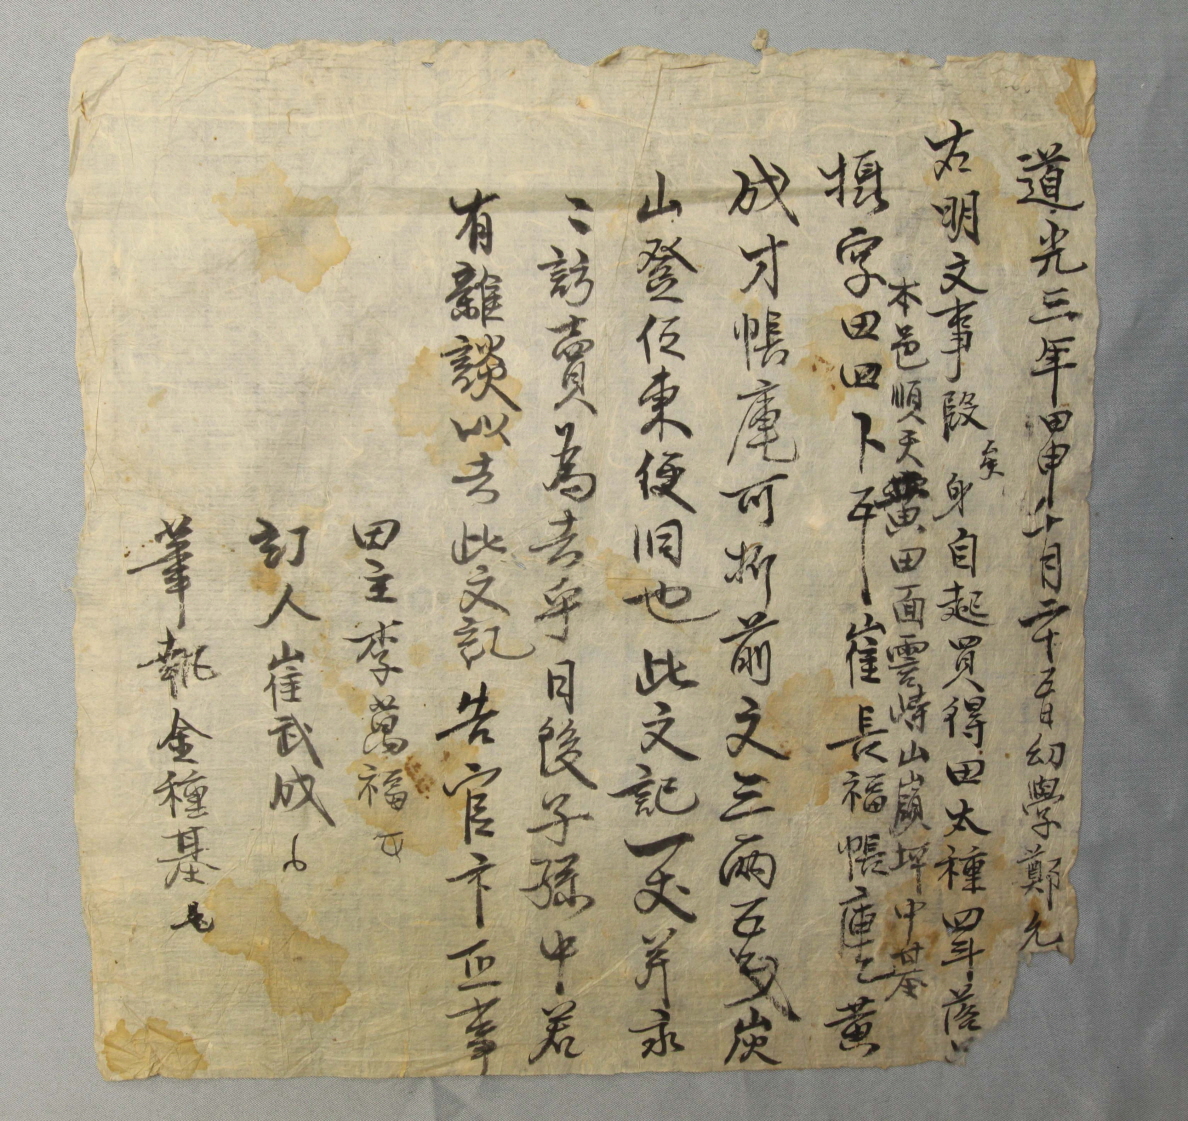 道光三年甲申十月二十五日幼學鄭允
右明文事段矣身自起買得田太種四斗落
本邑順天黃田面雲峙山嶺坪中基
攝字田四卜 崔長福帳庫乙黃
成才帳庫可折前文三兩五戔炭
山登伍東便旧也此文記一丈幷永
〻訪賣為去乎日後子孫中若
有雜談以去此文記告官卞正事
田主李萬福
訂人崔武成
筆執金種基